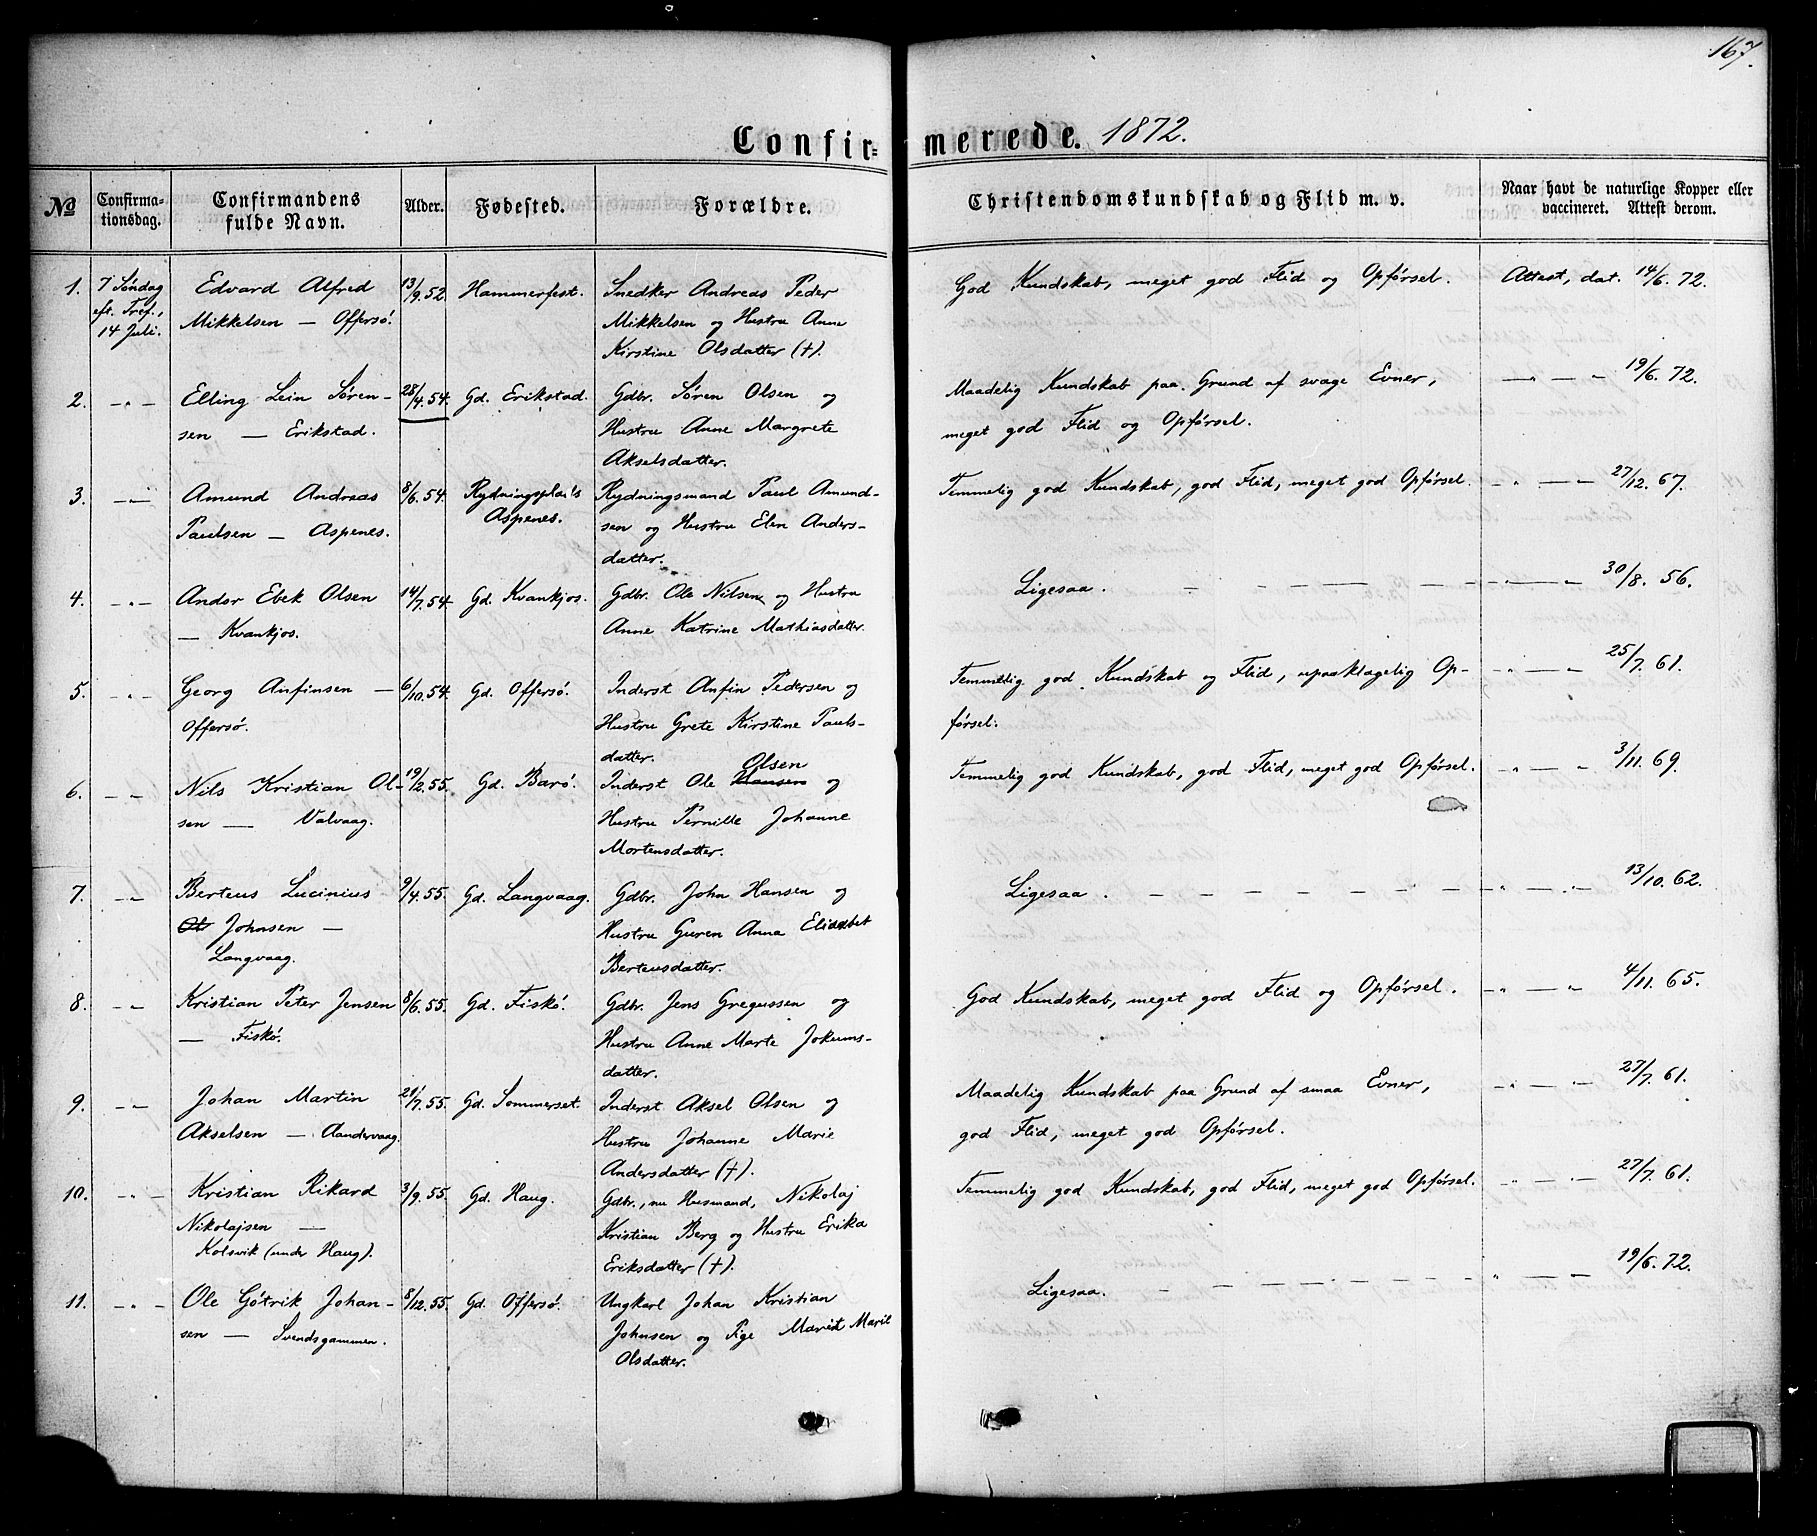 167.
Confir= merede. 1872.
No Confirma-tionsdag. Confirmandens fulde Navn. Alder. Fødested. Forældre. Christendomskundskab og Flid m. v. Naar havt de naturlige Kopper eller vaccineret. Attest derom.
1. 7 Søndag Edvard Alfred 13/9.52. Hammerfest. Snedker Andreas Peder God Kundskab, meget god Flid og Opførsel. Attest, dat. 14/6.72.
eft. Tref., Mikkelsen — Offersø. Mikkelsen og Hustru Anne
14 Juli. Kirstine Olsdatter (†).
2. -"- Elling Lein Søren- 28/4.54. Gd. Erikstad. Gdbr. Søren Olsen og Maadelig Kundskab paa Grund af svage Evner, — " — " 19/6.72.
sen — Erikstad. Hustru Anne Margrete meget god Flid og Opførsel.
Akselsdatter.
3. -"- Amund Andreas 8/6.54. Rydningsplads Rydningsmand Paul Amund- Temmelig god Kundskab, god Flid, meget god Opførsel. - " — " 27/12.67.
Paulsen — Aspenes. Aspenes. sen og Hustru Elen Anders-
datter.
4. -"- Andor Ebek Olsen 14/7.54. Gd. Kvankjos. Gdbr. Ole Nilsen og Hustru Ligesaa. - " — " 30/8.56.
— Kvankjos. Anne Katrine Mathiasdatter.
5. -"- Georg Anfinsen — 6/10.54. Gd. Offersø. Inderst Anfin Pedersen og Temmelig god Kundskab og Flid, upaaklagelig Op- - " — " 25/7.61.
Offersø. Hustru Grete Kirstine Pauls- førsel.
datter.
Olsen
6. -"- Nils Kristian Ol- 19/2.55. Gd. Barø. Inderst Ole Hansen og Temmelig god Kundskab, god Flid, meget god Opførsel. - " — " 3/11.69.
sen — Valvaag. Hustru Pernille Johanne
Mortensdatter.
7. -"- Berteus Lucinius 9/4.55. Gd. Langvaag. Gdbr. John Hansen og Ligesaa. - " — " 13/10.62.
Ol Johnsen — Hustru Guren Anna Elisabet
Langvaag. Berteusdatter.
8. -"- Kristian Peter Jensen 8/6.55. Gd. Fiskø. Gdbr. Jens Gregussen og God Kundskab, meget god Flid og Opførsel. - " — " 4/11.65.
— Fiskø. Hustru Anne Marte Jokums-
datter.
9. -"- Johan Martin 21/7.55. Gd. Sommerset. Inderst Aksel Olsen og Maadelig Kundskab paa Grund af smaa Evner, - " — " 27/7.61.
Akselsen — Aandervaag. Hustru Johanne Marie god Flid, meget god Opførsel.
Andersdatter (†).
10. -"- Kristian Rikard 3/9.55. Gd. Haug. Gdbr., nu Husmand, Nikolaj Temmelig god Kundskab, god Flid, meget god Opførsel. - " — " 27/7.61.
Nikolajsen — Kristian Berg og Hustru Erika
Kolsvik (under Haug). Eriksdatter (†).
11. -"- Ole Gøtrik Johan- 8/12.55. Gd. Offersø. Ungkarl Johan Kristian Ligesaa. - " — " 19/6.72.
sen — Svendsgammen. Johnsen og Pige Marie
Olsdatter.